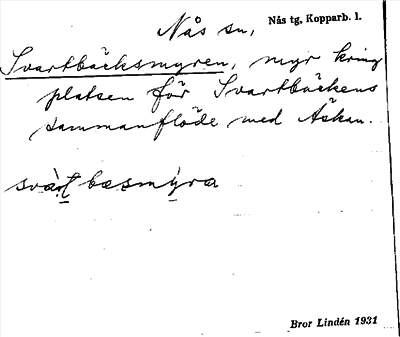 Nås sn, Nås tg, Kopparb. l.
Svartbäcksmyren, myr kring
platsen för Svartbäckens
sammanflöde med Åskan.
svàrt bæsmýra
Bror Lindén 1931